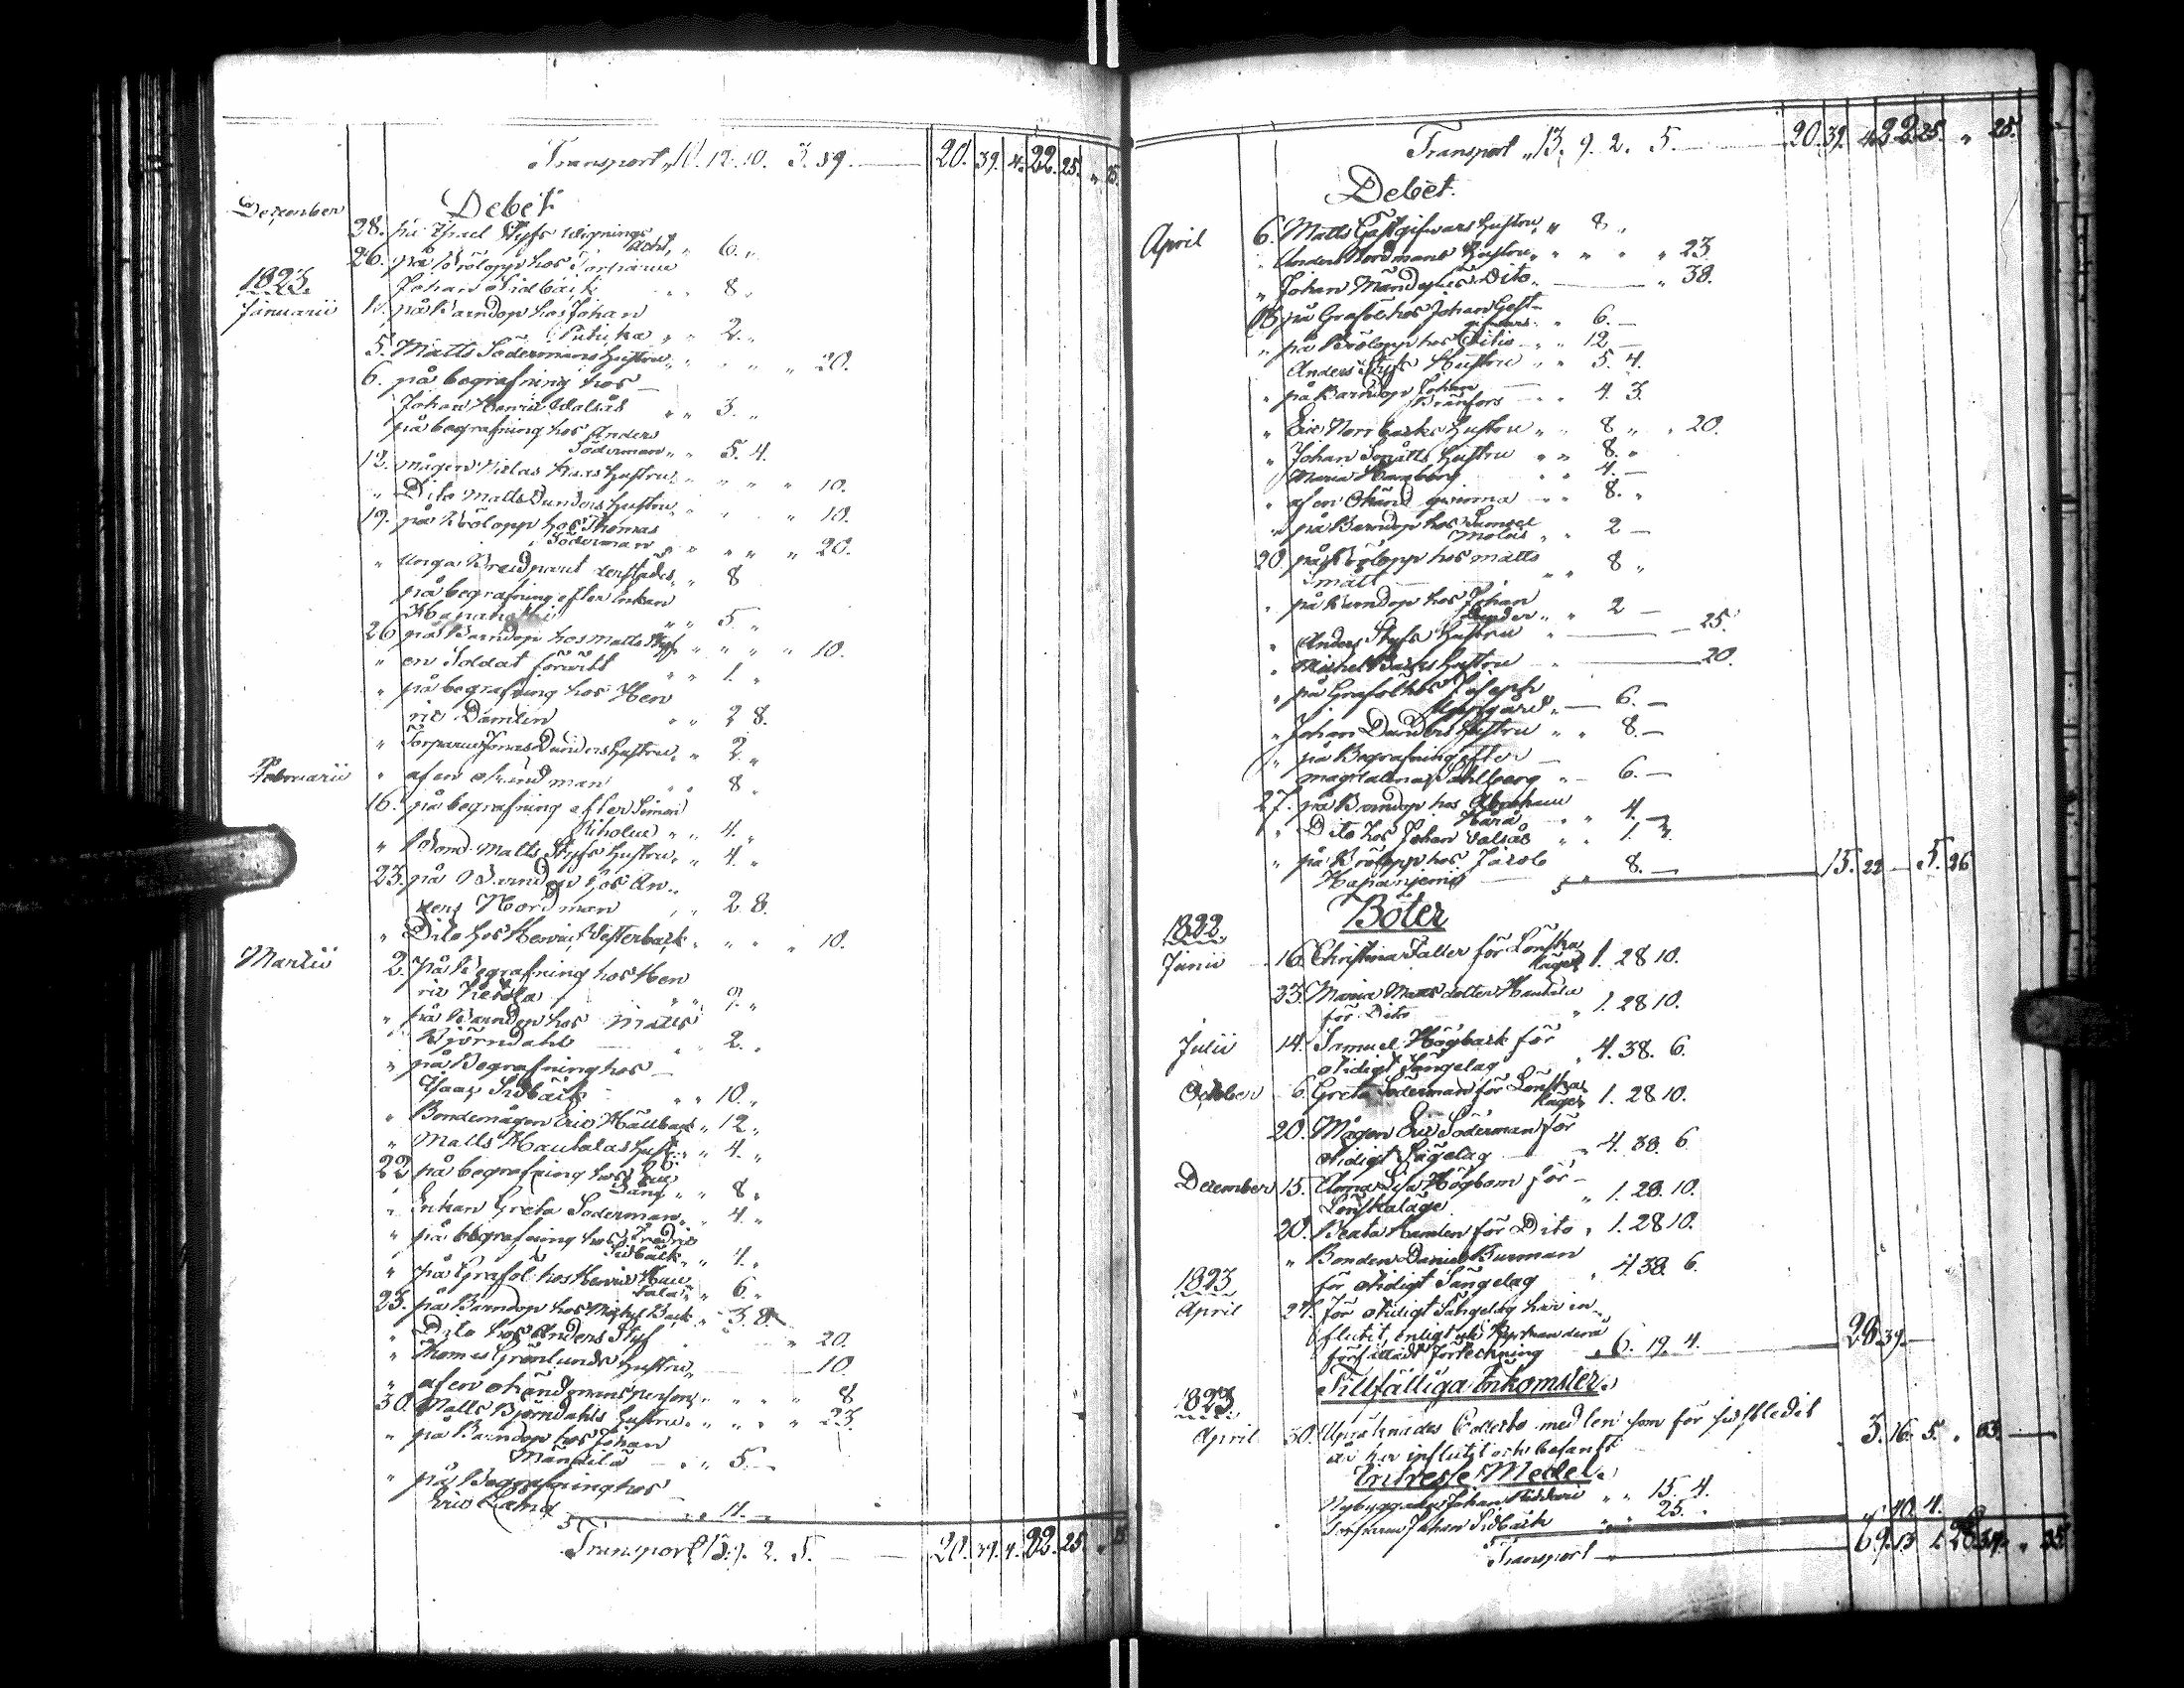 Transport „ 11. 12. 10. 3. 39. 20. 39. 4. 22. 25. „ 15.
December Debet
28. på Israel Styfs wignings
dito „ 6. „
26. på Brölopp hos Torparen
1823. Johan Sidbäck „ „ 8. „
Januarii 1. på Barndop hos Johan
„ „ 2. „
5. Matts Södermans hustru „ „ „ „ 20.
6. på begrafning hos —
Johan Henric Walsås „ „ 3. „
på begrafning hos Anders
Söderman „ „ 5. 4.
12. mågen Niclas hustru „ „ „ „ 10.
„ Dito Matts Dunders hustru „ „ „ 10.
19. på Brölopp hos Thomas
Söderman „ „ „ „ 20.
„ Unga Brudparet „ „ 8
på begrafning efter Enkan
„ „ 5 „
26 på Barndop hos Matts Styf „ „ „ „ 10.
„ en Soldat förärtt „ „ 1. „
„ på begrafning hos Hen
ric Damlin „ „ 2 8.
„ Torparen Jonas Dunders hustru „ „ 2. „
Februarii „ af en okänd man „ „ 8 „
16. på begrafning efter Simon
„ „ 4. „
„ Bond. Matts Styfs hustru „ „ 4. „
23. på Barndop hos An„
ders Nordman „ „ 2. 8.
„ Dito hos Henric Westerback „ „ „ „ 10.
Martii 2. på Begrafning hos Hen
ric Ketola „ „ 9. „
„ på Barndop hos Matts
Björndahl „ „ 2. „
„ på Begrafning hos —
Isaac Sidbäck „ „ 10. „
„ Bondemågen Eric Hällback „ 12 „
„ Matts Hautalas hust: „ „ 4. „
22 på begrafning hos Eric
Lång „ „ 8 „
„ Enkan Greta Söderman „ „ 4. „
„ på begrafning hos Fredric
Sidbäck „ „ 4. „
„ på Grafol hos Henric Hau
tala „ „ 6. „
23. på Barndop hos Michel Back „ 3. 8.
„ Dito hos Anders Styf „ „ 20.
„ Thomas Grönlunds hustru „ 10.
„ af en okänd mans person „ „ „ „ 8
30. Matts Björndahls hustru „ „ „ „ 23.
„ på Barndop hos Johan
Mändilä — „ „ 5. —
„ på Begrafning hos
Eric Lång „ „ 11. „
Transport 13. 9. 2. 5. — — 20. 39. 4. 22. 25. „ 15.
Transport „ 13. 9. 2. 5. — 20. 39. 4. 22. 25. „ 25.
Debet.
April 6. Matts Gästgifwars hustru „ „ 8 „
„ Anders Nordmans hustru „ „ „ „ „ 23.
„ Johan Mändyläs Dito „ — „ 38.
13. på Graföl hos Johan Gäst—
gifwars „ „ 6. —
„ på Brölopp hos Ditto — „ 12 —
Anders Styfs hustru „ „ 5. 4.
„ på Barndop Johan
Bränfors — „ „ 4. 3.
„ Eric Norrbacks hustru „ „ 8 „ „ 20.
„ Johan Smätts hustru „ „ 8. „
Maria Hamberg „ „ 4. —
„ af en Okänd qwinna „ „ 8. „
„ på Barndop hos Samuel
Molus „ „ 2 —
20. på Brölopp hos Matts
Smätt — „ „ 8 „
„ på Barndop hos Johan
Dunder „ „ 2 —
„ Anders Styfs hustru „ — 25.
„ Michel Backs hustru „ — 20.
„ på Grafol hos Joseph
„ — 6. —
„ Johan Dunders hustru „ „ 8. —
„ på Begrafning efter —
Magdalena Sahlberg „ — 6. —
27. på Barndop hos Abraham
Harä „ „ 4. —
„ Dito hos Johan Walsås „ „ 1. 3.
„ på Brölopp hos Jacob
„ 8. — 15. 22 — 5. 26
Böter
1822.
Junii 16. Christina Faller för Lönska
läge 1. 28 10.
23. Maria Matts dotter Hautala
för Dito „ 1. 28 10.
Julii 14. Samuel Högback för
otidigt Sängelag „ 4. 38. 6.
October 6. Greta Söderman för Lönska
läge 1. 28 10.
20. Mågen Eric Söderman för
otidigt Sägelag „ 4. 38. 6
December 15. Anna Lisa Högbom för —
Lönskaläge „ 1. 28. 10.
20. Beata Hamlen för Dito „ 1. 28 10.
„ Bonden Daniel Burman
1823 för otidigt Sängelag „ 4. 38. 6.
April 27. för otidigt Sängelag har in„
flutit, enligt Kyrkoherdens
författade förteckning „ 6. 19. 4. — 28 39. —
Tillfälliga Inkomster.
1823
April 30. Upräknades Collecte medlen som för
år har influtit och befants 3. 16. 5. „ 63. —
Intresse Medel.
Nybyggaren Johan „ „ 15. 4.
Torparen Johan Sidbäck „ „ 25. „ 40. 4.
Transport — 69. 13 1. 28. 34. „ 35